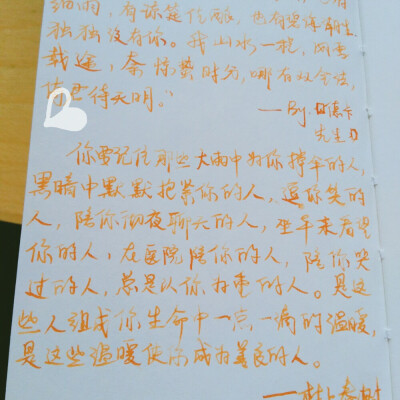 细雨，有
独独没有你。我山水一程，风雪
载途，
待天明。"
——By,
先生
你要记住那些大雨中为你撑伞的人，
黑暗中默默抱紧你的人，逗你笑的
人，陪你彻夜聊天的人，坐车来看望
你的人，在医院陪你的人，陪你哭
过的人，总是以你为重的人。是这
些人组成你生命中一点一滴的温暖，
是这些温暖使你成为善良的人。
——村上春树